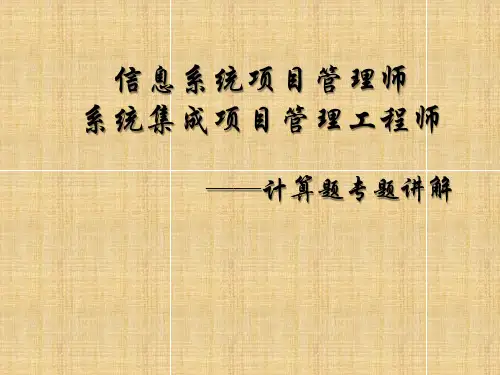 信息系统项目管理师
系统集成项目管理工程师
——计算题专题讲解